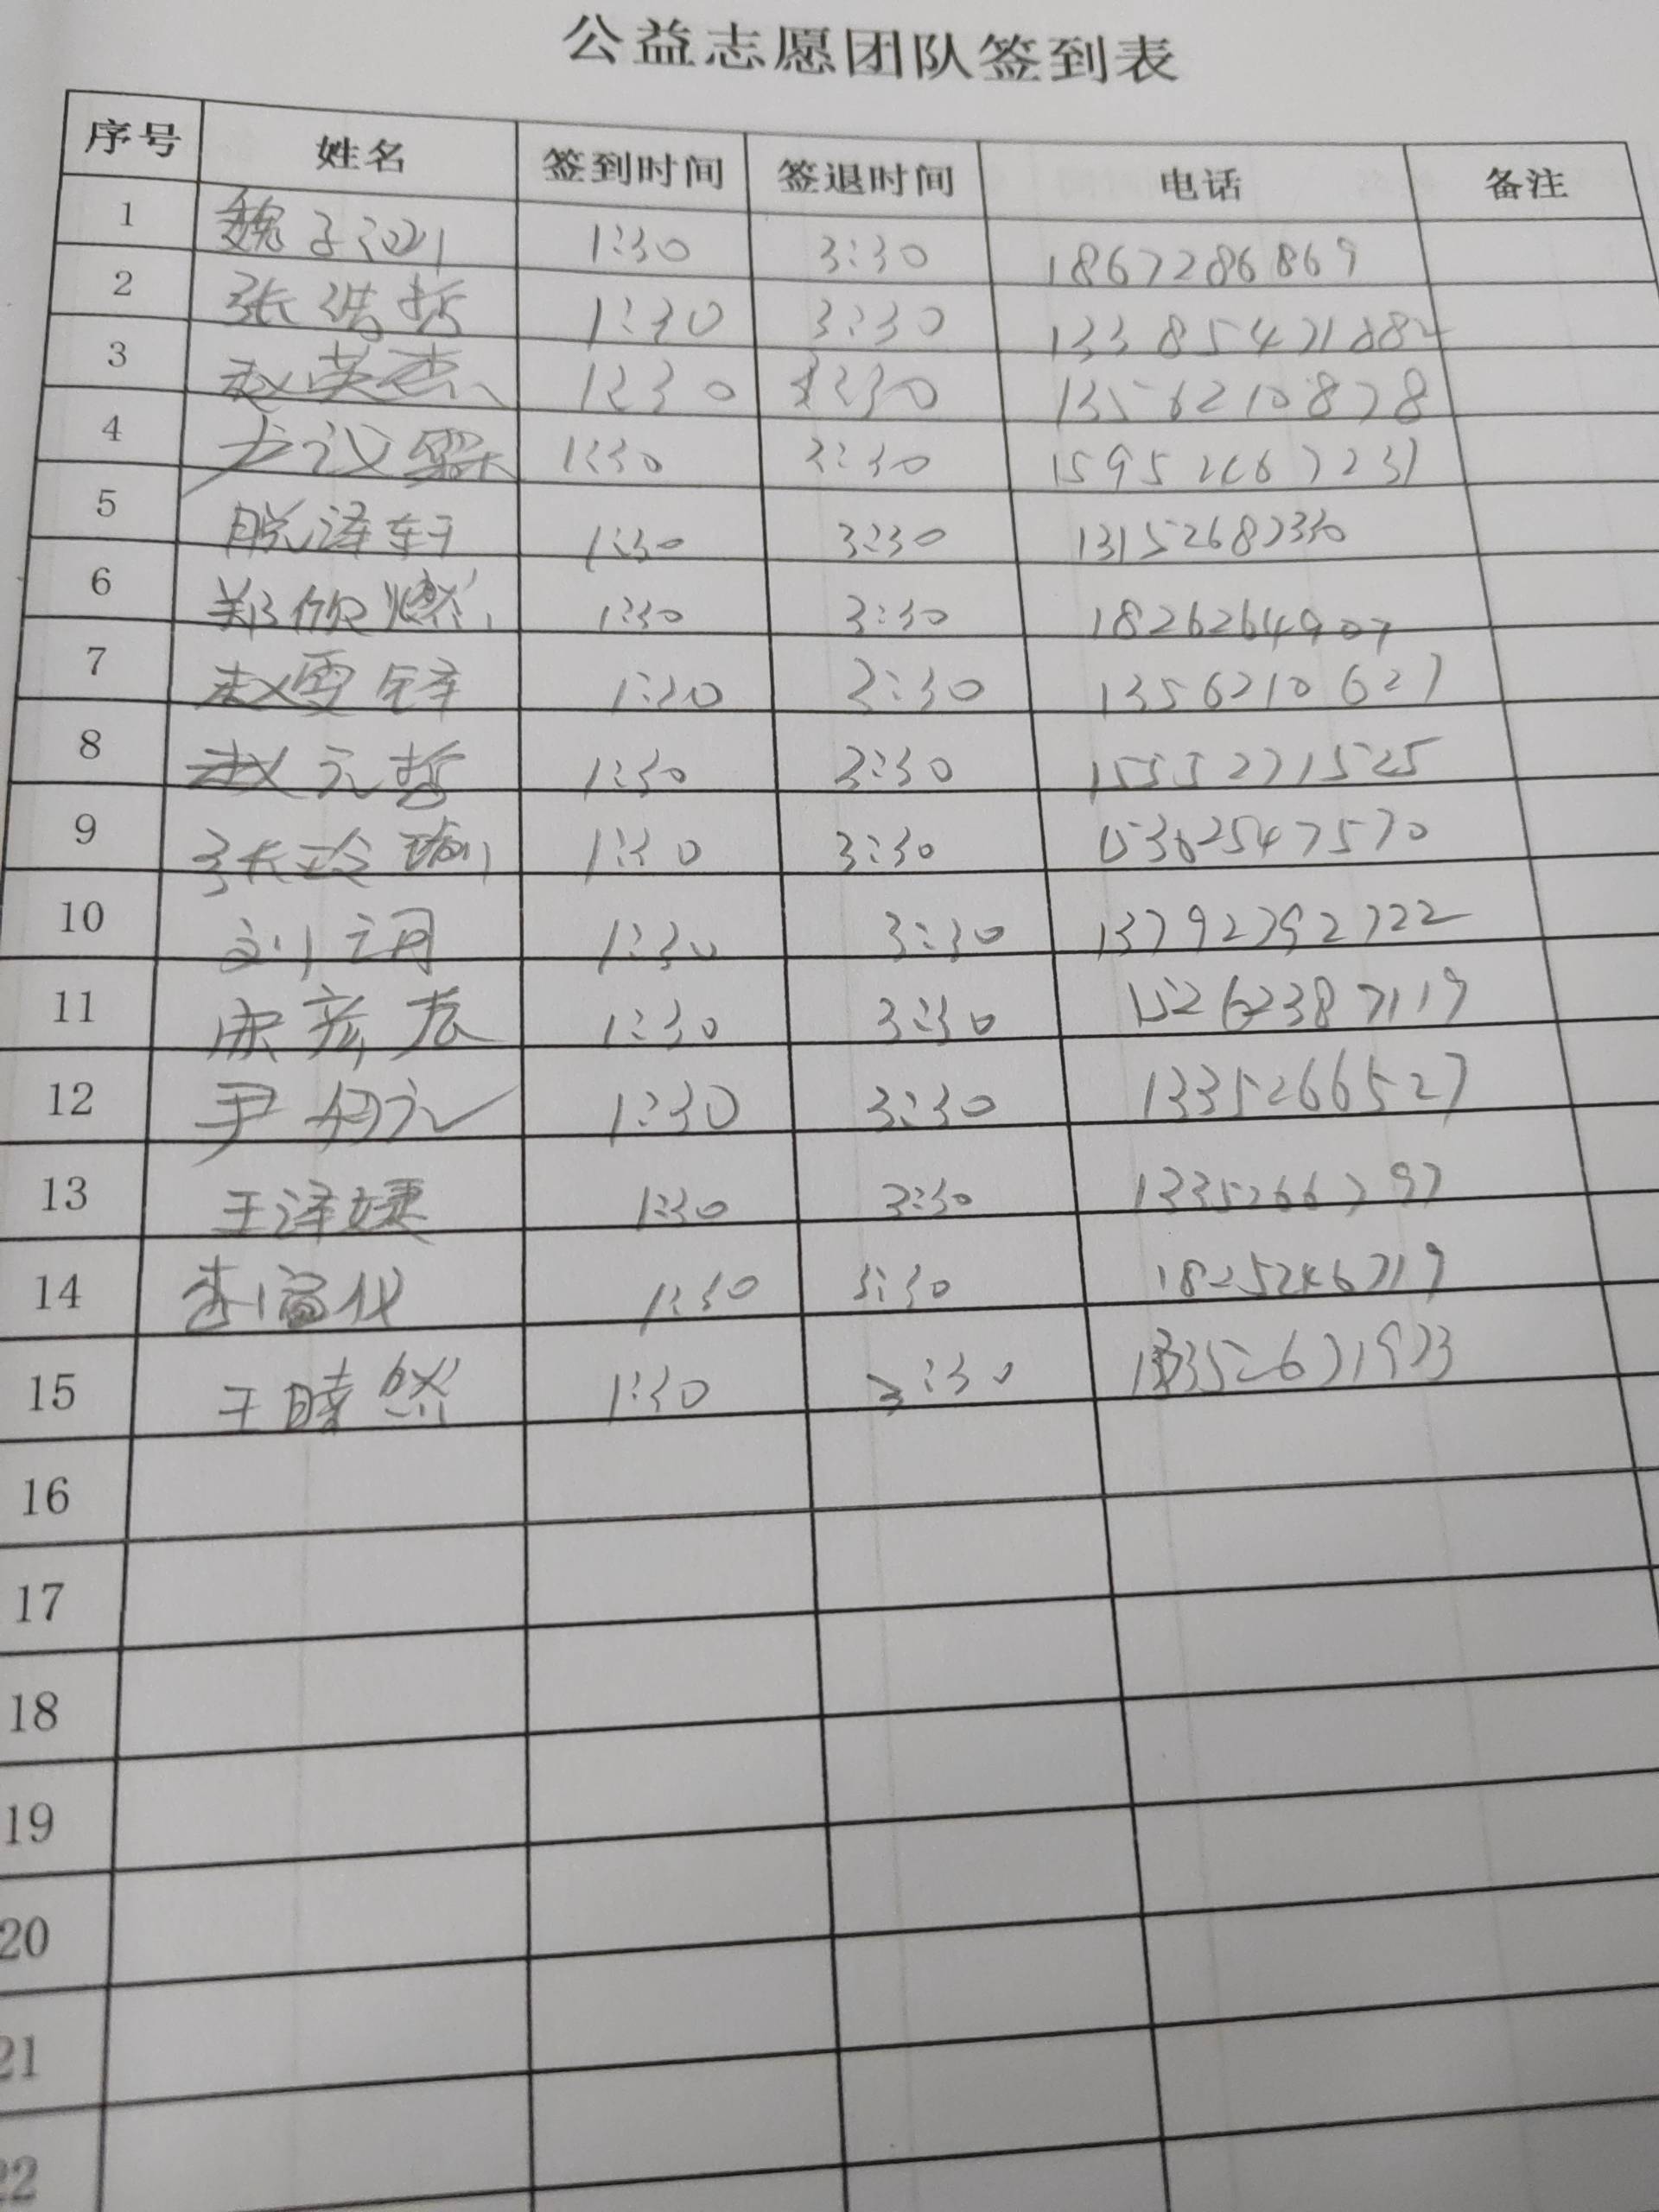 公益志愿团队签到表
序号 姓名 签到时间 签退时间 电话 备注
1 魏子 1:30 3:30 1867286869
2 张浩哲 1:30 3:30 13385471882
3 赵英杰 1:30 3:30 1356210878
4 1:30 3:30
5 脱泽轩 1:30 3:30 13152687330
6 郑欣燃 1:30 3:30 18262264907
7 赵雪铎 1:30 3:30 1356210627
8 赵元哲 1:30 3:30 15552271525
9 张玲瑜 1:30 3:30 15362547570
10 刘词 1:30 3:30 13792792722
11 1:30 3:30 15262387119
12 尹 元 1:30 3:30 1335266527
13 王泽婕 1:30 3:30 1335266797
14 李 1:30 3:30
15 王 悠 1:30 3:30
16
17
18
19
20
21
22